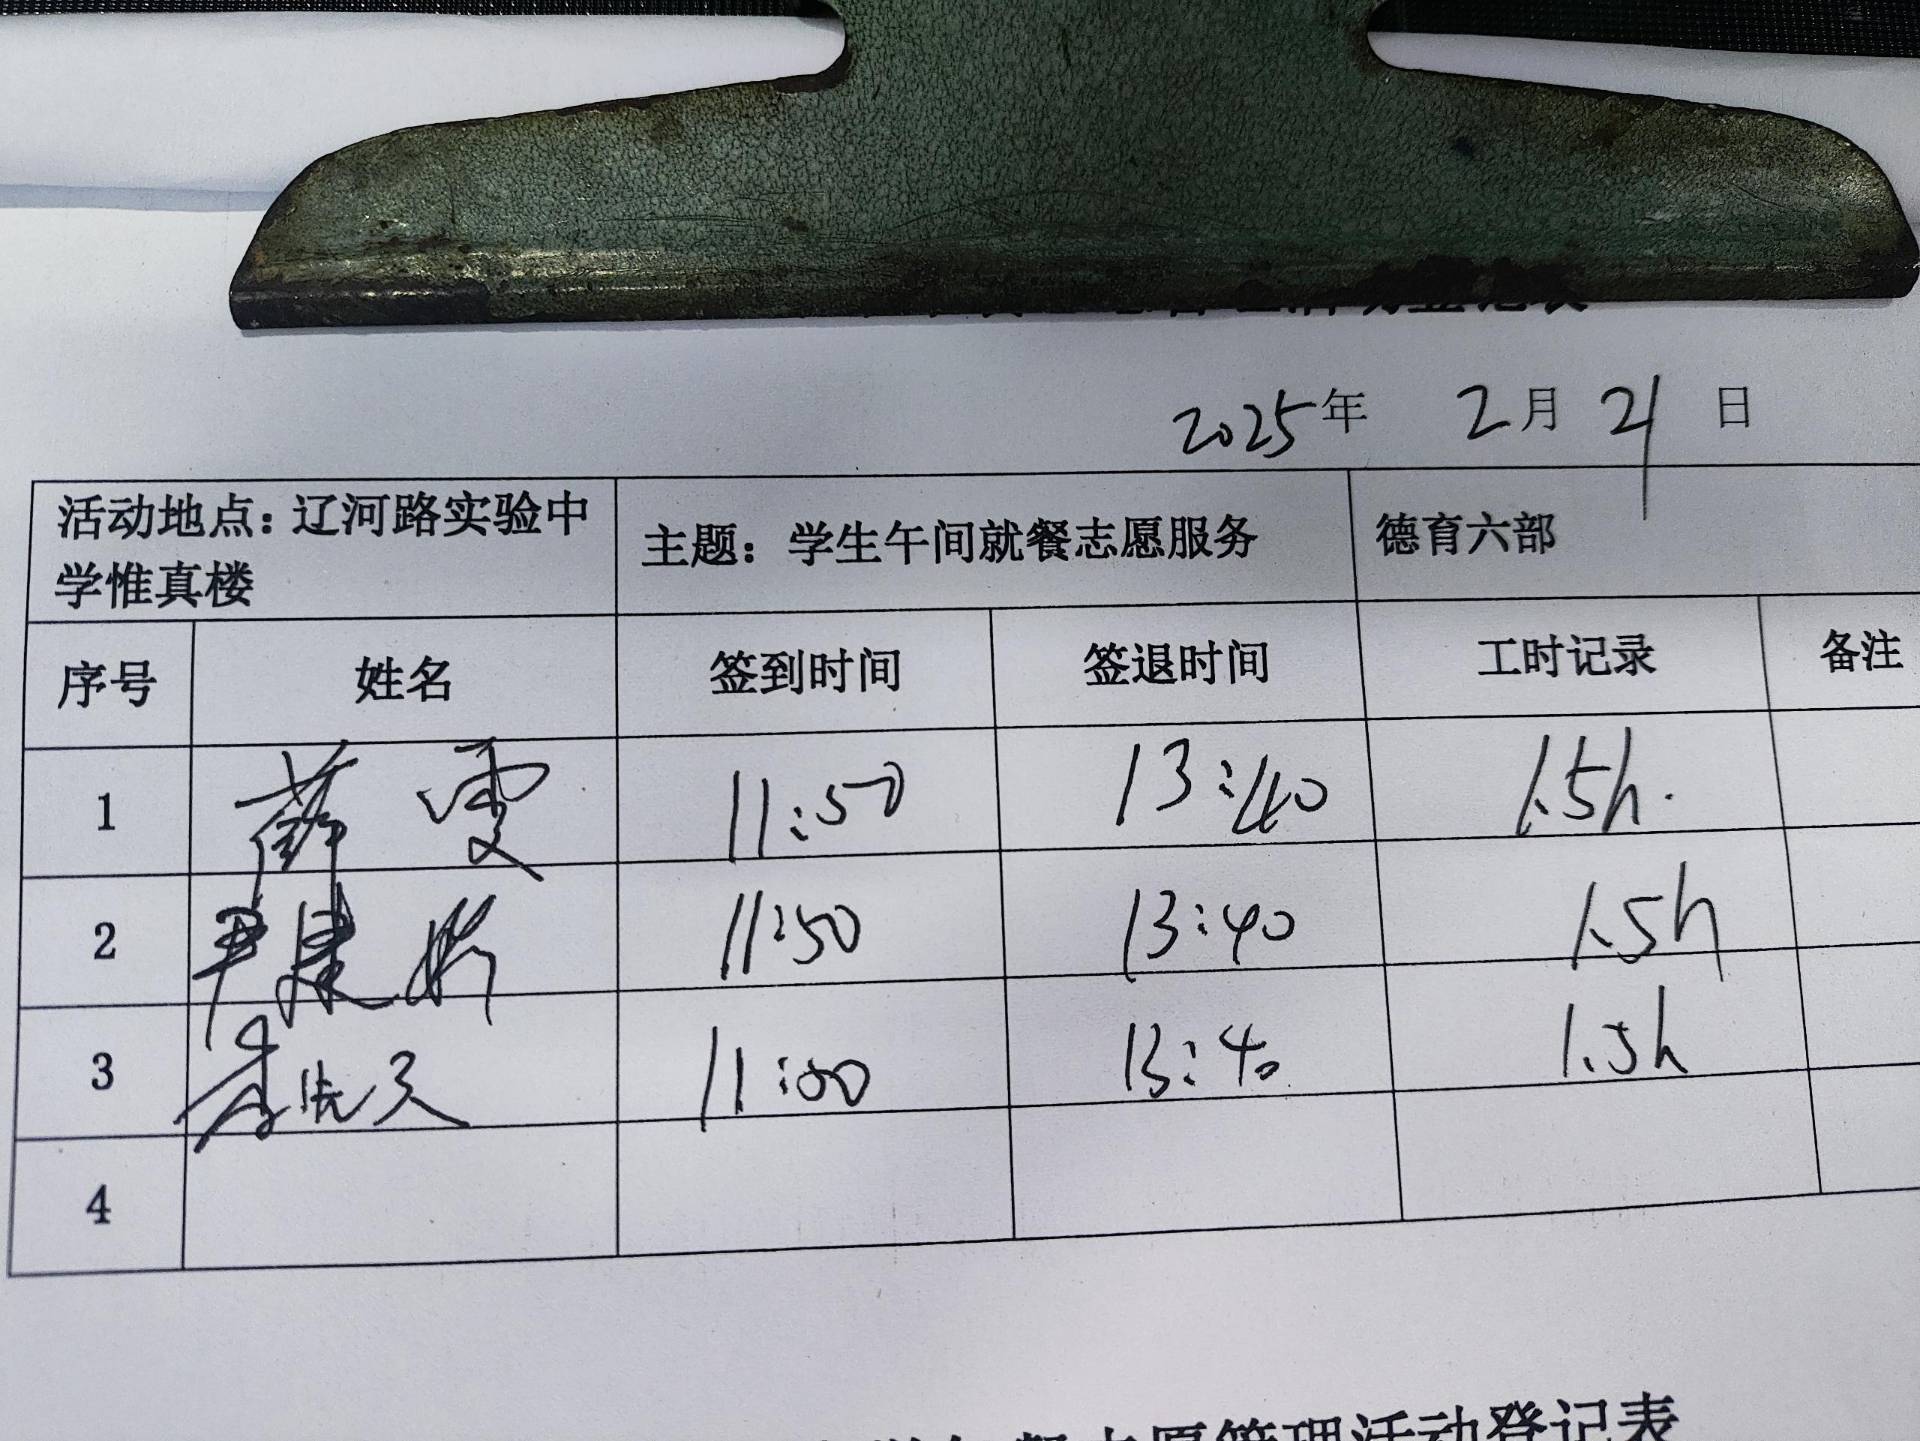 2025年 2月 21 日
活动地点：辽河路实验中
学惟真楼
主题：学生午间就餐志愿服务
德育六部
序号 姓名 签到时间 签退时间 工时记录 备注
1 薛雯 11:50 13:40 1.5h.
2 11:50 13:40 1.5h
3 11:50 13:40 1.5h
4
餐志愿管理活动登记表